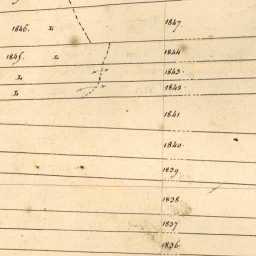 1846. x.
1847
1845. x.
1844
x.
1843.
x.
1842.
1841
1840.
1839
1838
1837
1836.